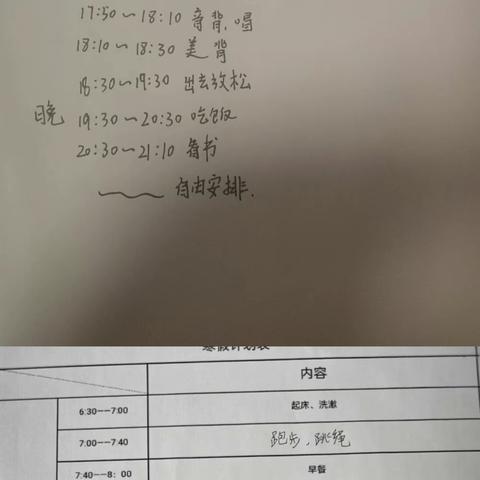 17:50～18:10 音背,唱
18:10～18:30 美背
18:30～19:30 出去放松
晚 19:30～20:30 吃饭
20:30～21:10 看书
自由安排.
寒假计划表
内容
6:30——7:00 起床、洗漱
7:00——7:40 跑步,跳绳
7:40——8:00 早餐